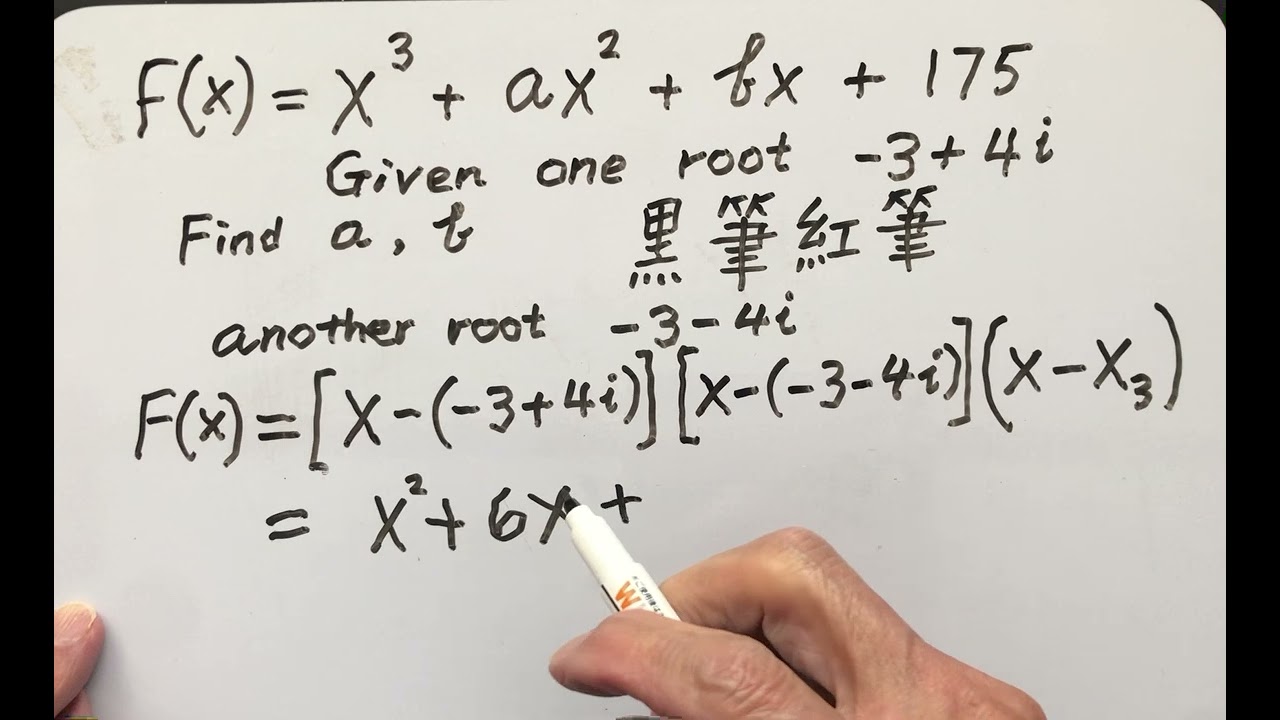 F(x) = x³ + ax² + bx + 175
Given one root -3+4i
Find a, b 黑筆紅筆
another root -3-4i
F(x) = [x-(-3+4i)][x-(-3-4i)](x-x₃)
= x² + 6x +
W